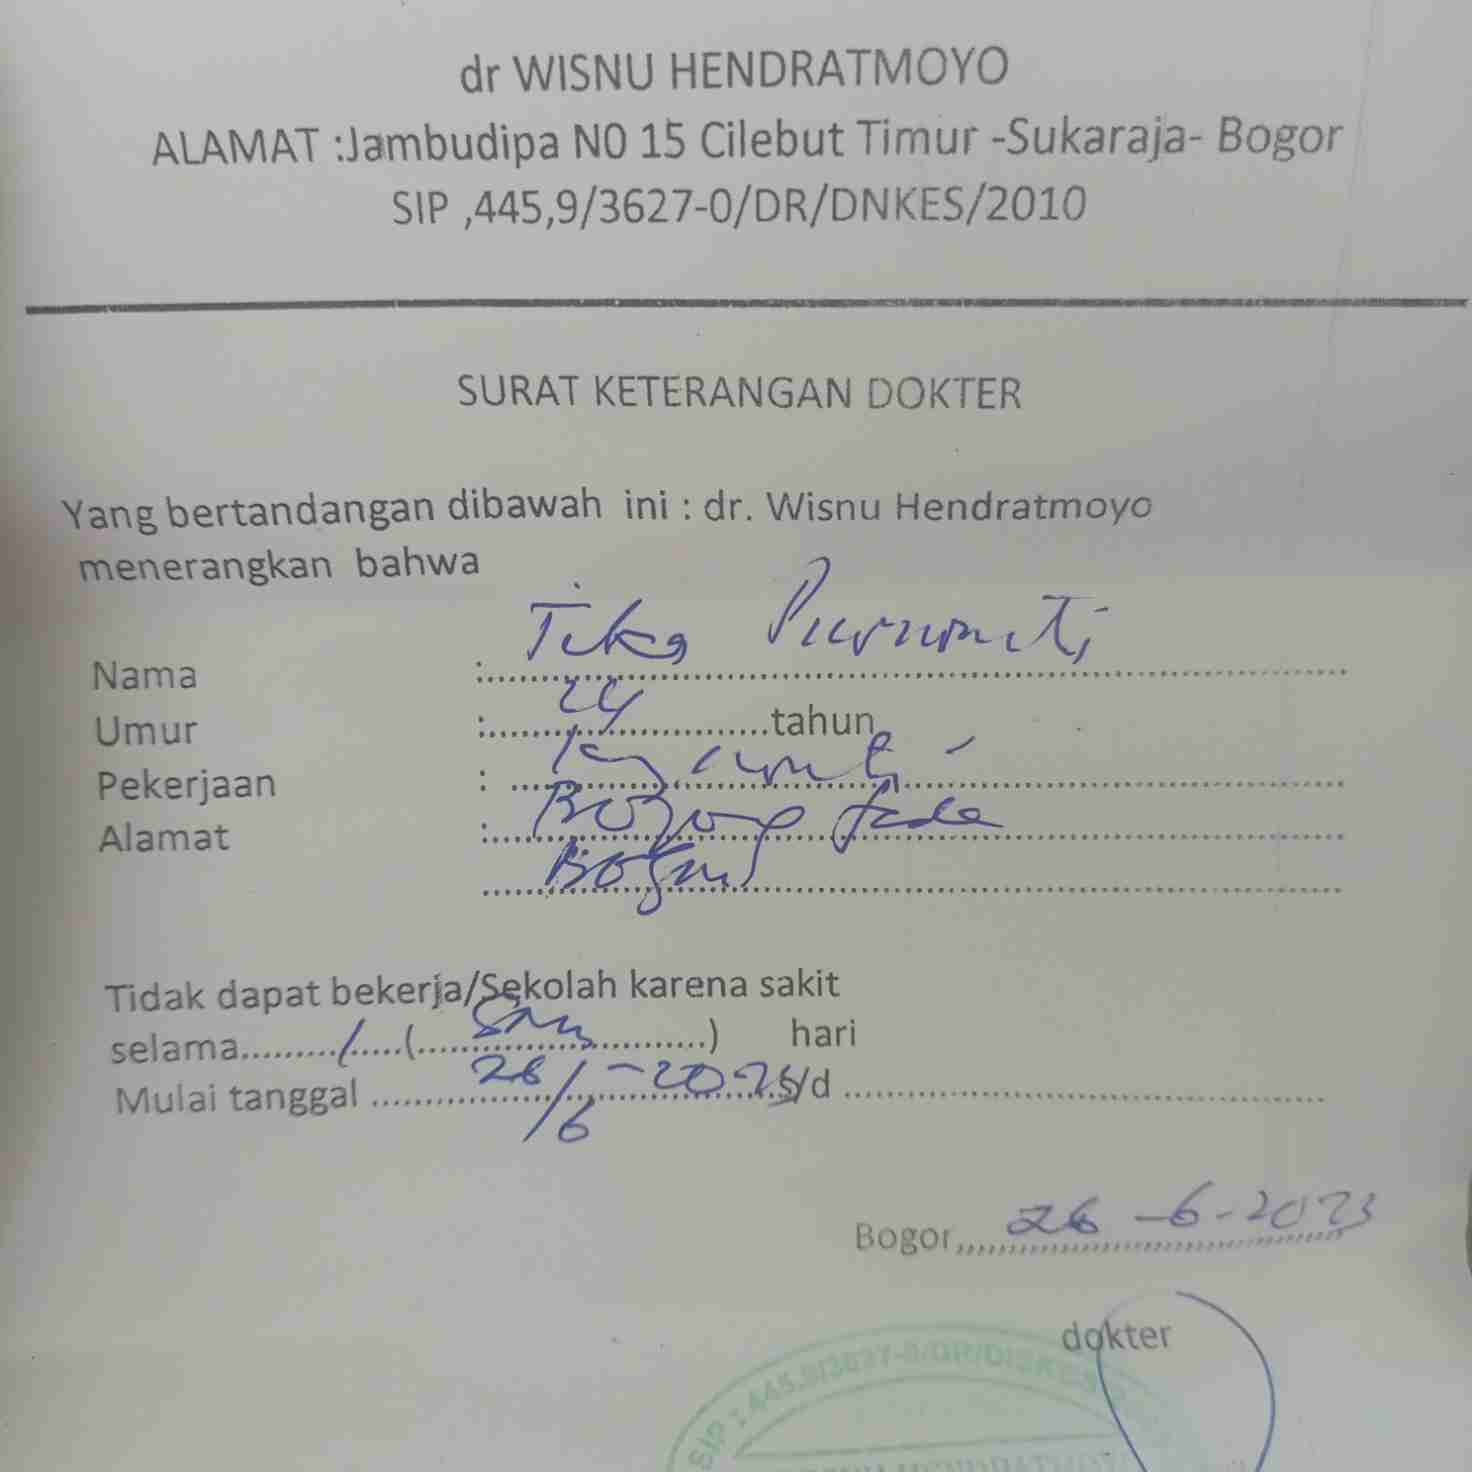 dr WISNU HENDRATMOYO
ALAMAT :Jambudipa N0 15 Cilebut Timur -Sukaraja- Bogor
SIP ,445,9/3627-0/DR/DNKES/2010
SURAT KETERANGAN DOKTER
Yang bertandangan dibawah ini : dr. Wisnu Hendratmoyo
menerangkan bahwa
Nama : Tika Purwanti
Umur : 24 tahun
Pekerjaan :
Alamat : Bojong Gede
Bogor
Tidak dapat bekerja/Sekolah karena sakit
selama.........1.....(....satu....) hari
Mulai tanggal 26/6 - 2023 s/d
Bogor,,,, 26 - 6 - 2023
dokter
SIP : 445.9/3627-0/DR/DISKES